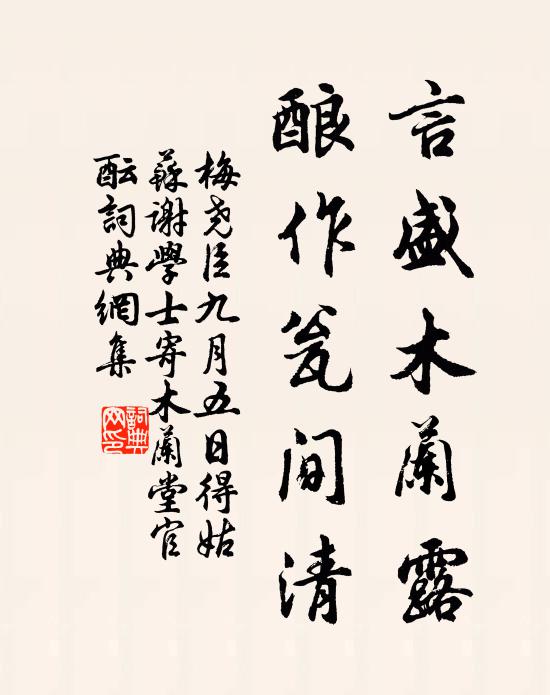 言盛木蘭露
酿作瓮间清
梅尧臣九月五日得姑
蘇谢學士寄木蘭堂官
酝詞典網集
詞典
网印